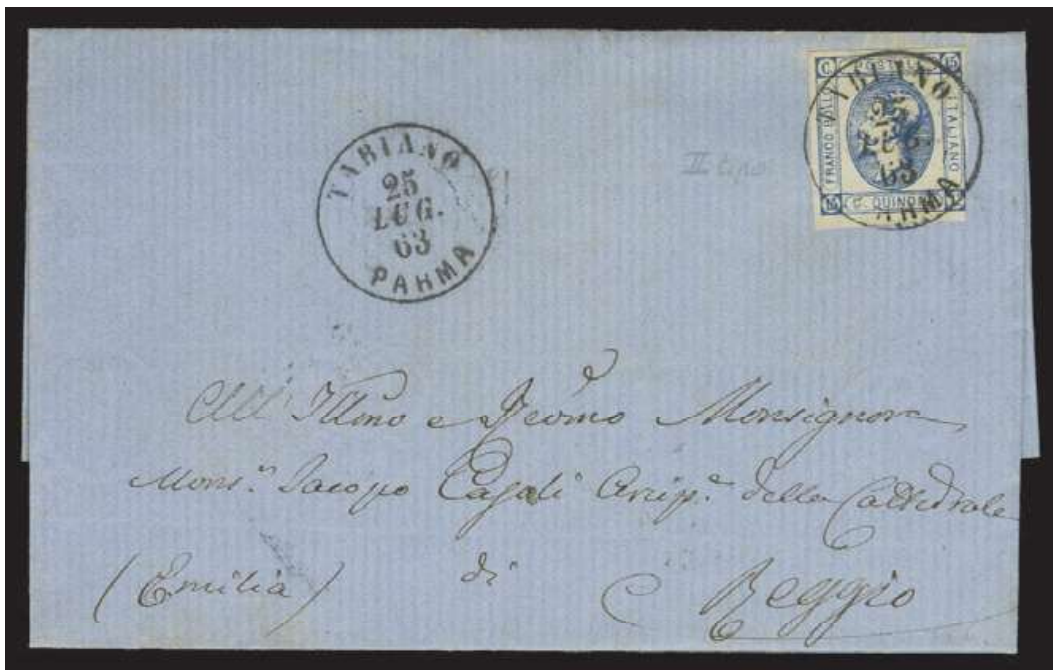 TABIANO
25
LUG.
63
PARMA
C. POSTALE 15
FRANCO BOLLO
ITALIANO
C. QUINDICI
TABIANO
25
LUG.
63
PARMA
II tipo
All' Illmo e Monsignor
Mons.r Jacopo Casali Arcip.e della Cattedrale
(Emilia) di Reggio